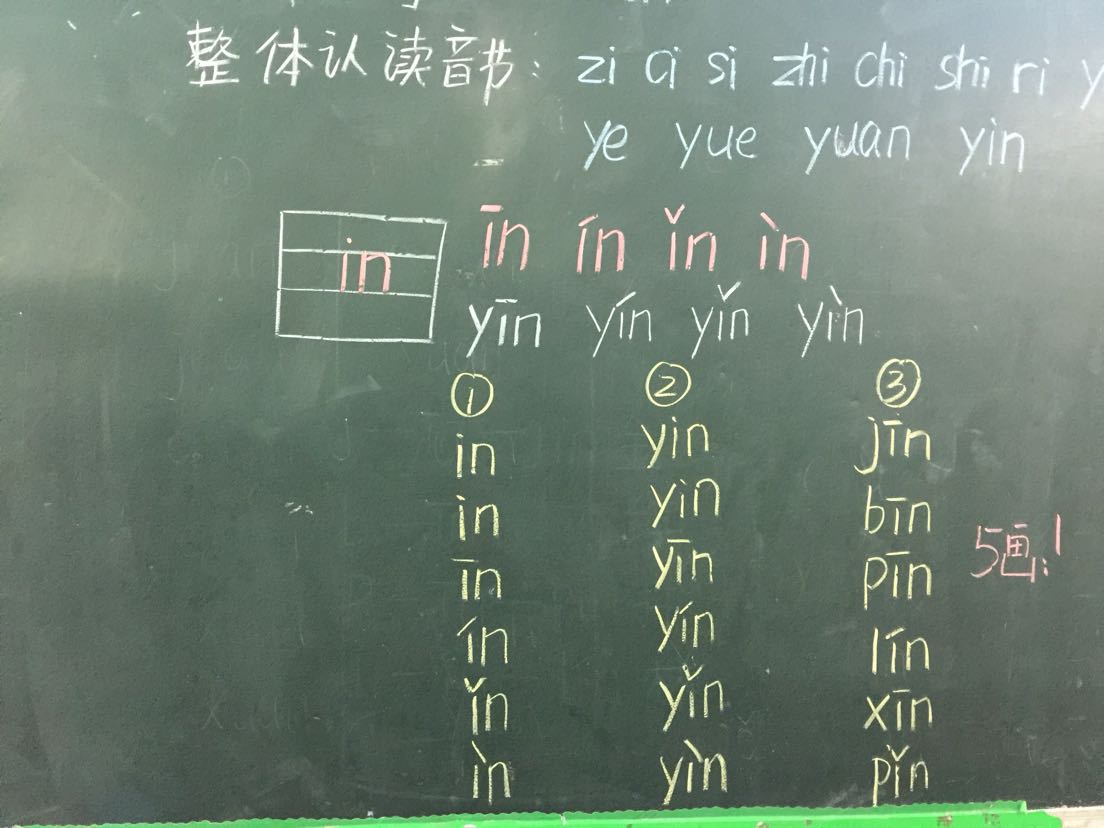 整体认读音节: zi ci si zhi chi shi ri y
ye yue yuan yin
in īn ín ǐn ìn
yīn yín yǐn yìn
① ② ③
in yin jīn
in yin bīn
īn yīn pīn 5画:
ín yín lín
ǐn yǐn xīn
ìn yìn pǐn